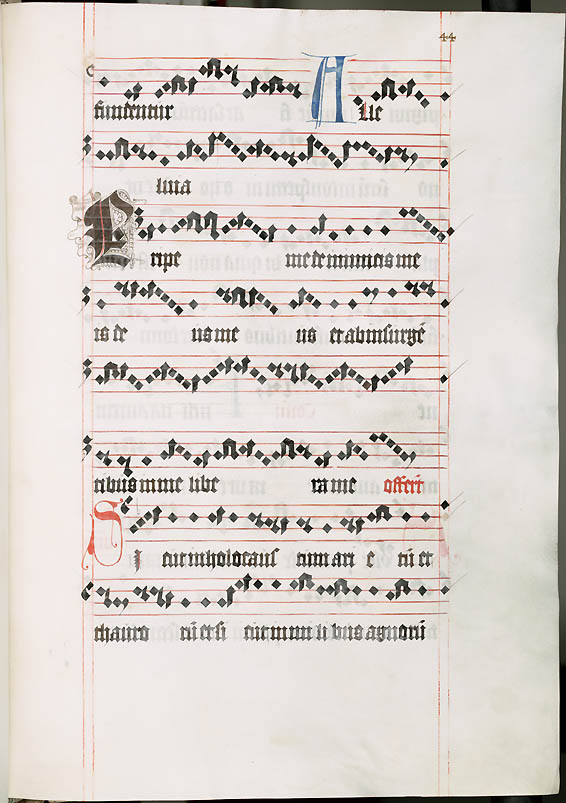 44
funduntur Alle
luia
Eripe me de inimicis me
is de us me us et ab insurgē
tibus in me libe ra me offert
Sicut in holocaus tum ari e tū et
thauro rū et si cut in mili bus agnorū